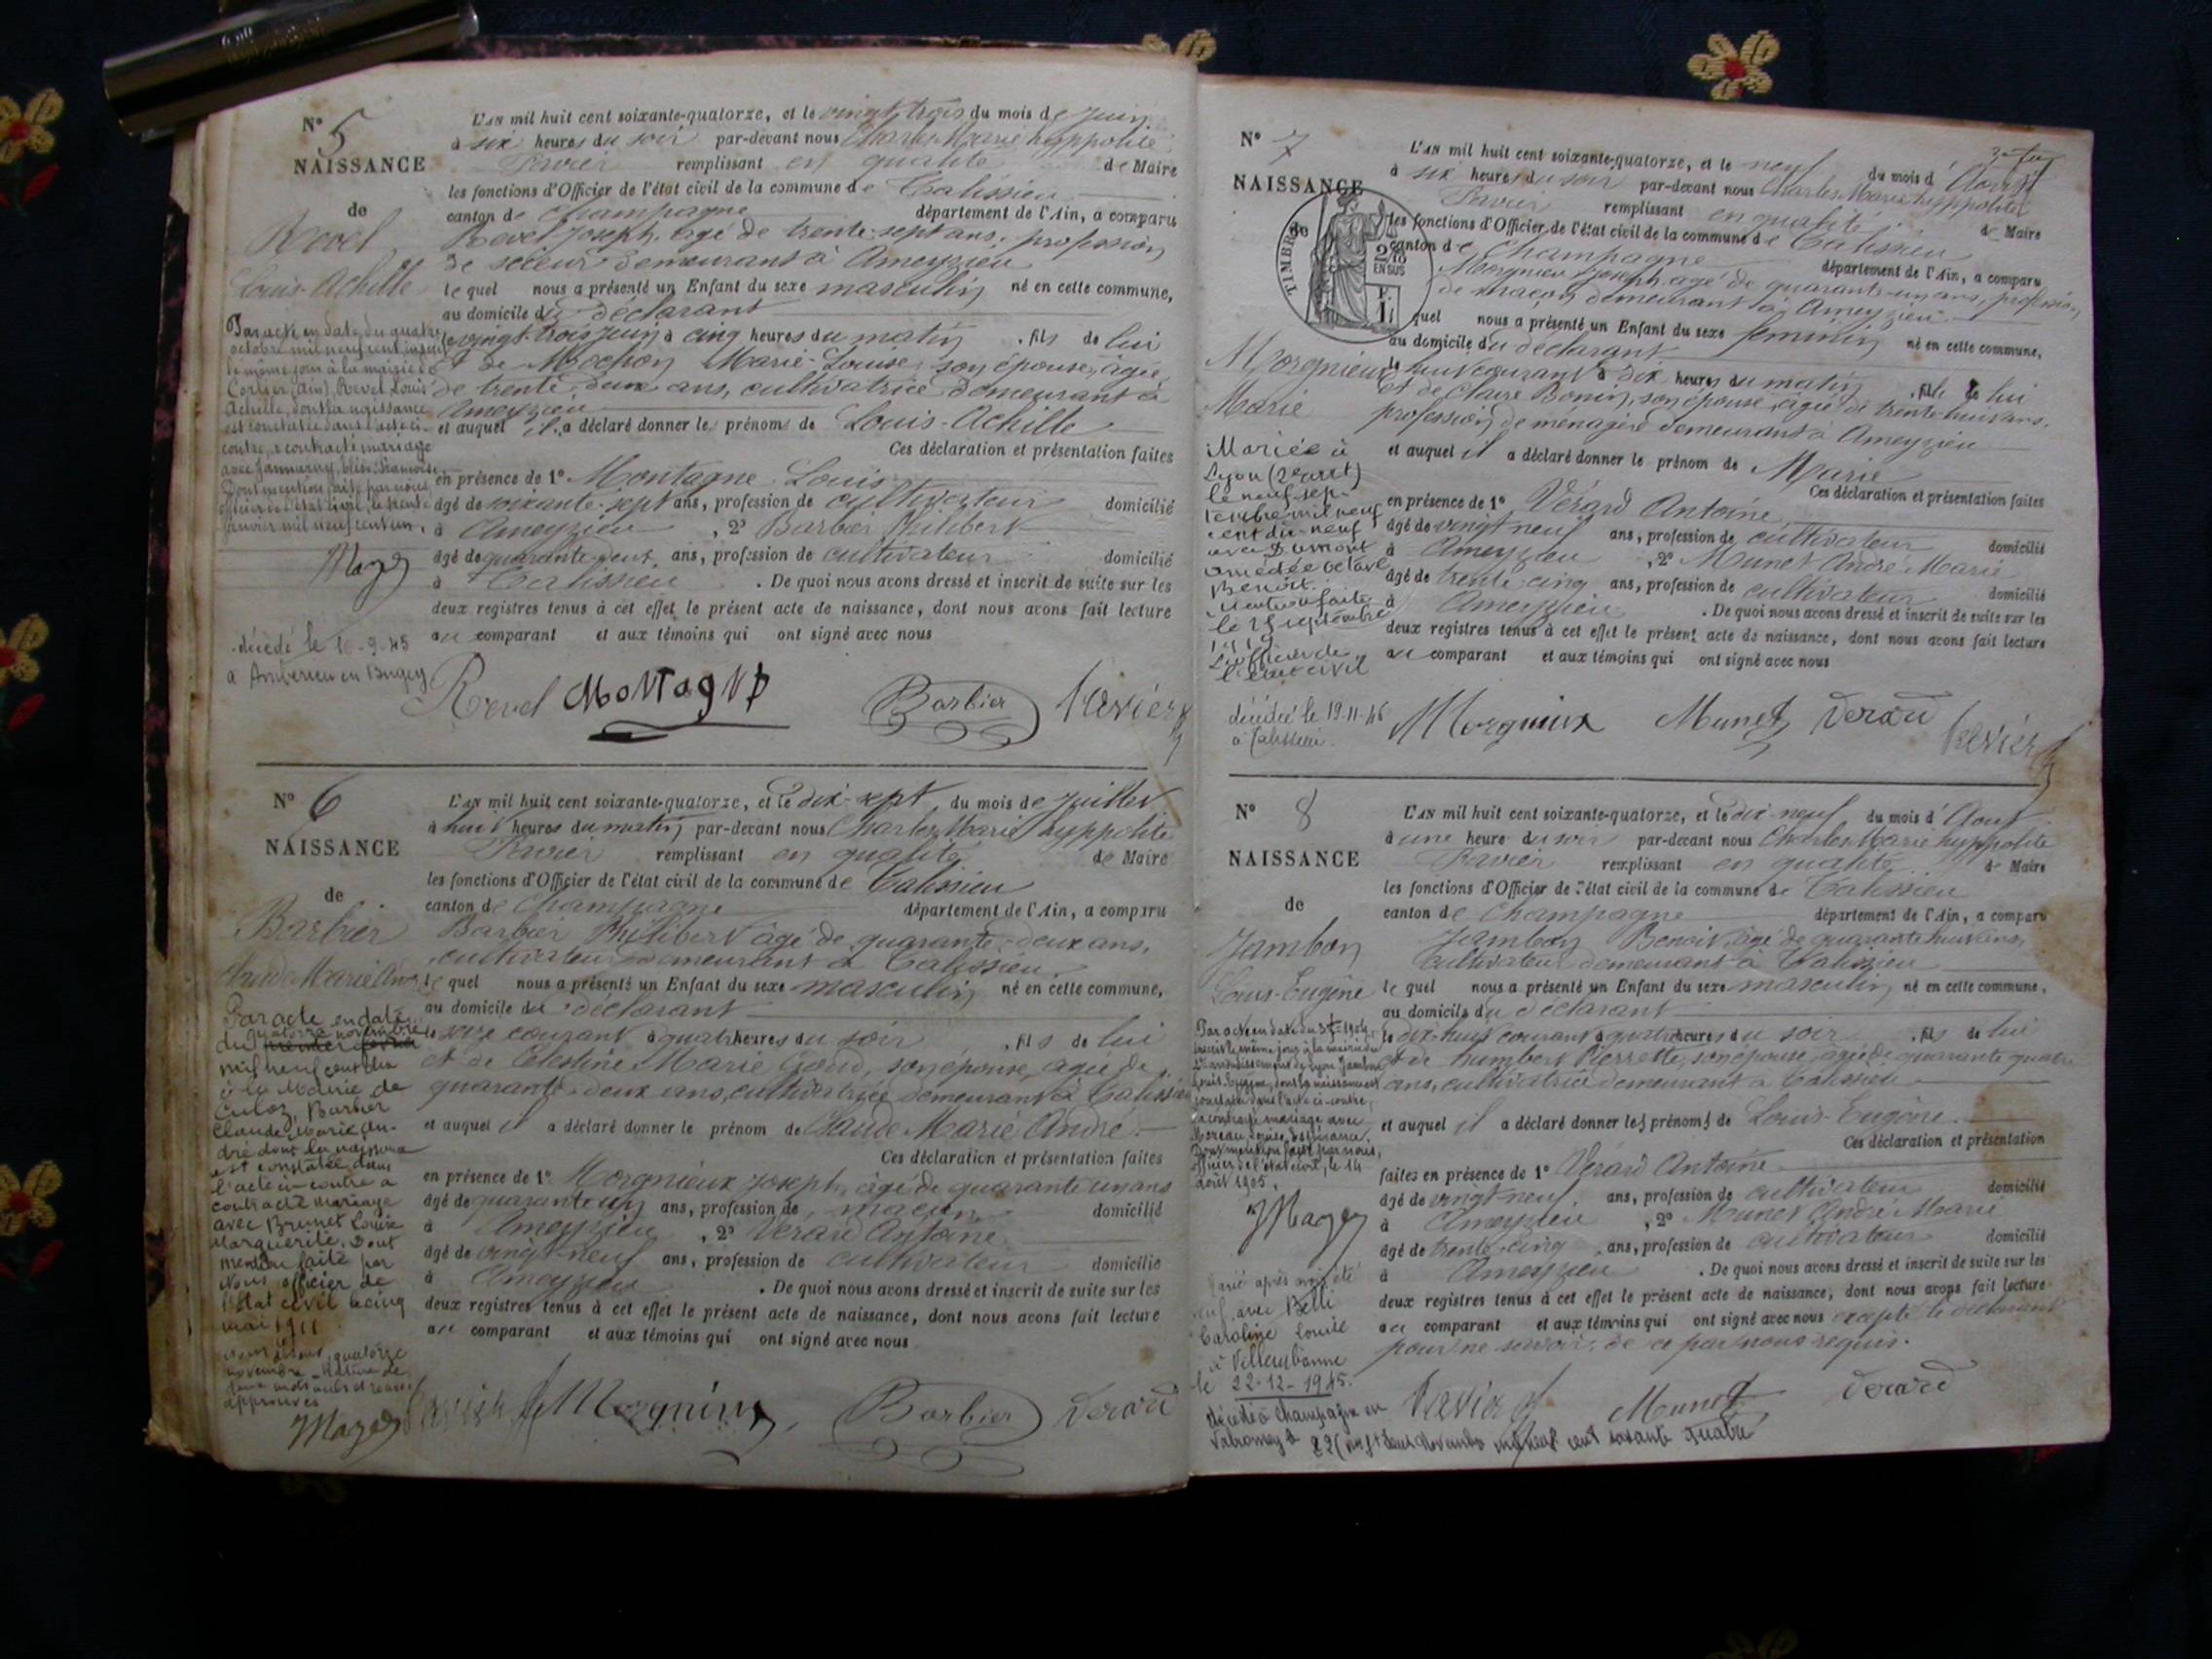 N° 5
NAISSANCE
de
Revel
Louis Achille
L'AN mil huit cent soixante-quatorze, et le vingt trois du mois de Juin
à six heures du soir par-devant nous Charles Marie hyppolite
Favier remplissant en qualité de Maire
les fonctions d'Officier de l'état civil de la commune de Talissieu
canton de Champagne département de l'Ain, a comparu
Revel Joseph, âgé de trente-sept ans, profession
de scieur demeurant à Ameyzieu
lequel nous a présenté un Enfant du sexe masculin né en cette commune,
au domicile du déclarant
le vingt-trois juin à cinq heures du matin, fils de lui
et de Mochon Marie-Louise, son épouse, âgée
de trente deux ans, cultivatrice demeurant à
Ameyzieu
et auquel il a déclaré donner les prénoms de Louis-Achille
Ces déclaration et présentation faites
en présence de 1° Montagne Louis
âgé de soixante-sept ans, profession de cultivateur domicilié
à Ameyzieu, 2° Barbier Philibert
âgé de quarante deux ans, profession de cultivateur domicilié
à Talissieu. De quoi nous avons dressé et inscrit de suite sur les
deux registres tenus à cet effet le présent acte de naissance, dont nous avons fait lecture
au comparant et aux témoins qui ont signé avec nous
Par acte en date du quatre
octobre mil neuf cent, inscrit
le même jour à la mairie de
Corlier (Ain), Revel Louis
Achille, dont la naissance
est constatée dans l'acte ci-
contre, a contracté mariage
avec
Dont mention faite par nous
officier de l'état civil, le trente
janvier mil neuf cent un.
décédé le 10-9-45
à Ambérieu en Bugey
Revel Montagne Barbier Favier
N° 6
NAISSANCE
de
Barbier
Claude Marie André
L'AN mil huit cent soixante-quatorze, et le dix-sept du mois de Juillet
à huit heures du matin par-devant nous Charles Marie hyppolite
Favier remplissant en qualité de Maire
les fonctions d'Officier de l'état civil de la commune de Talissieu
canton de Champagne département de l'Ain, a comparu
Barbier Philibert âgé de quarante-deux ans,
cultivateur demeurant à Talissieu
lequel nous a présenté un Enfant du sexe masculin né en cette commune,
au domicile du déclarant
le seize courant à quatre heures du soir, fils de lui
et de Célestine Marie, son épouse, âgée de
quarante-deux ans, cultivatrice demeurant à Talissieu
et auquel il a déclaré donner le prénom de Claude Marie André
Ces déclaration et présentation faites
en présence de 1° Morgnieux Joseph, âgé de quarante un ans
âgé de quarante un ans, profession de maçon domicilié
à Ameyzieu, 2° Verard Antoine
âgé de vingt-neuf ans, profession de cultivateur domicilié
à Ameyzieu. De quoi nous avons dressé et inscrit de suite sur les
deux registres tenus à cet effet le présent acte de naissance, dont nous avons fait lecture
au comparant et aux témoins qui ont signé avec nous
Par acte en date
du quatorze novembre
mil neuf cent dix
à la Mairie de
Culoz, Barbier
Claude Marie An-
dré dont la naissance
est constatée dans
l'acte ci-contre a
contracté mariage
avec Brunet Louise
Marguerite. Dont
mention faite par
Nous officier de
l'état civil le cinq
mai 1911
Favier Morgnieux Barbier Verard
N° 7
NAISSANCE
de
TIMBRE
2/10
EN SUS
Morgnieux
Marie
L'AN mil huit cent soixante-quatorze, et le neuf du mois d'Aout
à six heures du soir par-devant nous Charles Marie hyppolite
Favier remplissant en qualité de Maire
les fonctions d'Officier de l'état civil de la commune de Talissieu
canton de Champagne département de l'Ain, a comparu
Morgnieux Joseph, âgé de quarante-un ans, profession
de maçon demeurant à Ameyzieu
quel nous a présenté un Enfant du sexe féminin né en cette commune,
au domicile du déclarant
le neuf courant à dix heures du matin, fille de lui
et de Claire Bonin, son épouse, âgée de trente huit ans,
profession de ménagère demeurant à Ameyzieu
et auquel il a déclaré donner le prénom de Marie
Ces déclaration et présentation faites
en présence de 1° Vérard Antoine
âgé de vingt neuf ans, profession de cultivateur domicilié
à Ameyzieu, 2° Munet André Marie
âgé de trente-cinq ans, profession de cultivateur domicilié
à Ameyzieu. De quoi nous avons dressé et inscrit de suite sur les
deux registres tenus à cet effet le présent acte de naissance, dont nous avons fait lecture
au comparant et aux témoins qui ont signé avec nous
Mariée à
Lyon (2e arrt)
le neuf sep-
tembre mil neuf
cent dix-neuf
avec Dumont
Amédée Octave
Benoit.
Mention faite
le 15 septembre
1919
L'officier de
l'état civil
décédée le 19-11-46
à Talissieu.
Morgnieux Munet Verard Favier
N° 8
NAISSANCE
de
Jambon
Louis-Eugène
L'AN mil huit cent soixante-quatorze, et le dix-neuf du mois d'Aout
à une heure du soir par-devant nous Charles Marie hyppolite
Favier remplissant en qualité de Maire
les fonctions d'Officier de l'état civil de la commune de Talissieu
canton de Champagne département de l'Ain, a comparu
Jambon Benoit, âgé de quarante huit ans,
cultivateur demeurant à Talissieu
lequel nous a présenté un Enfant du sexe masculin né en cette commune,
au domicile du déclarant
le dix-huit courant à quatre heures du soir, fils de lui
et de humbert Pierrette, son épouse, âgée de quarante quatre
ans, cultivatrice demeurant à Talissieu
et auquel il a déclaré donner les prénoms de Louis-Eugène
Ces déclaration et présentation
faites en présence de 1° Verard Antoine
âgé de vingt-neuf ans, profession de cultivateur domicilié
à Ameyzieu, 2° Munet André Marie
âgé de trente-cinq ans, profession de cultivateur domicilié
à Ameyzieu. De quoi nous avons dressé et inscrit de suite sur les
deux registres tenus à cet effet le présent acte de naissance, dont nous avons fait lecture
au comparant et aux témoins qui ont signé avec nous excepté le déclarant
pour ne savoir, de ce par nous requis.
Louis-Eugène, dont la naissance est
constatée dans l'acte ci-contre,
a contracté mariage avec
Dont mention faite par nous,
officier de l'état civil, le 14
août 1905.
Marié après avoir été
veuf avec Belli
Caroline Louise
à Villeurbanne
le 22-12-1945.
décédé à Champagne en
Valromey le 22 (vingt deux novembre mil neuf cent soixante quatre
Favier Munet Verard